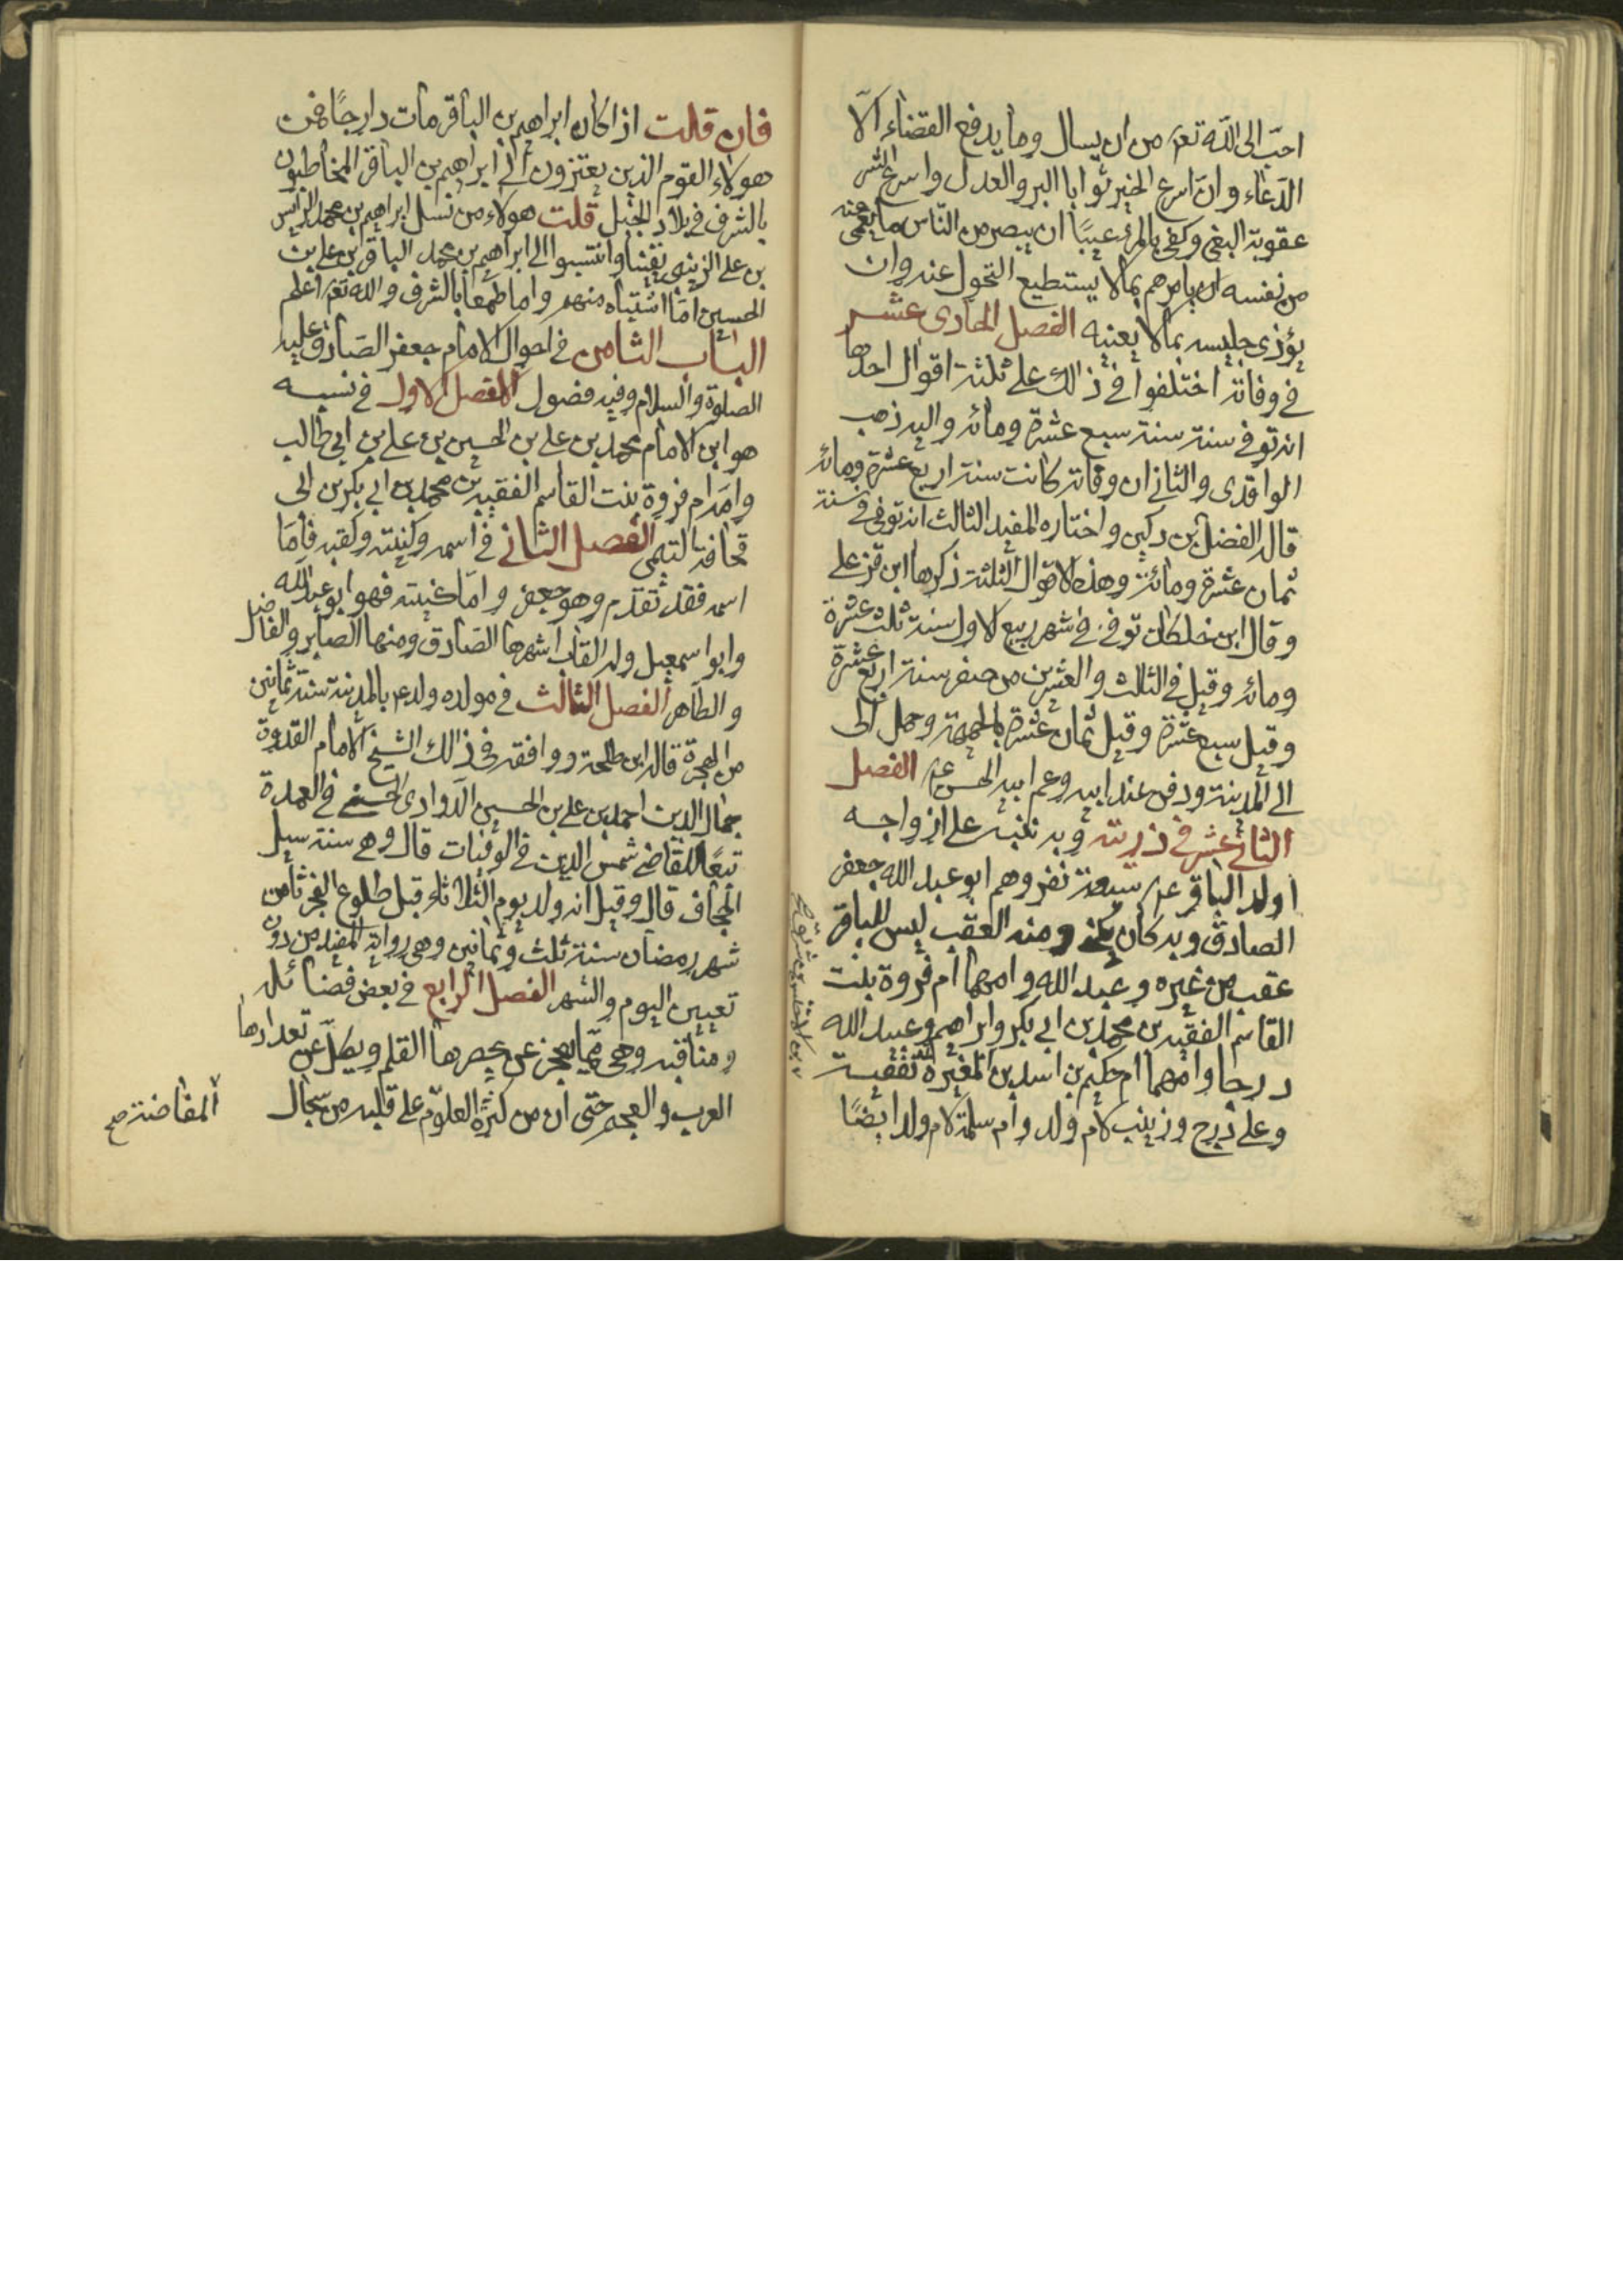 احبّ الى الله تعم من ان يسال وما يدفع القضاء الّا
الدّعاء وانّ اسرع الخير ثوابا البر والعدل واسرع الشر
عقوبة البغي وكفى بالمرء عيبًا ان يبصر من النّاس ما يعمى عنه
من نفسه ان يامرهم بما لا يستطيع التحول عنه وان
يؤذى جليسه بما لا يعنيه الفصل الحادى عشر
في وفاته اختلفوا في ذالك على ثلثة اقوال احدها
انه توفى سنة سنة سبع عشرة ومائه واليه ذهب
الواقدى والثاني ان وفاته كانت سنة اربع عشرة ومائه
قاله الفضل بن دكين واختاره المفيد الثالث انه توفى في سنة
ثمان عشرة ومائة وهذه الاقوال الثلثة ذكرها ابن قزعلي
وقال ابن خلكان توفى في شهر ربيع الاول سنة ثلث عشرة
ومائه وقيل في الثالث والعشرين من صفر سنة اربع عشرة
وقيل سبع عشرة وقيل ثمان عشرة بالحميمة وحمل الى
الى المدينة ودفن عند ابيه وعم ابيه الحسن عم الفصل
الثاني عشر في ذريته وبه ننبه على ازواجه
اولد الباقر عم سبعة نفر وهم ابو عبد الله جعفر
الصادق وبه كان يكنى ومنه العقب ليس للباقر
عقب من غيره وعبد الله وامهما ام فروة بنت
القاسم الفقيه بن محمد بن ابي بكر وابراهيم وعبيد الله
درجا وامهما ام حكيم بن اسد بن المغيرة الثقفية
وعلى درج وزينب لام ولد وام سلمة لام ولد ايضًا
فان قلت اذا كان ابراهيم بن الباقر مات دارجًا فمن
هولاء القوم الذين يعتزون الى ابراهيم بن الباقر المخاطبون
بالشرف في بلاد الجبل قلت هولاء من نسل ابراهيم بن محمد الرايس
بن على الزينبى يقينا وانتسبوا الى ابراهيم بن محمد الباقر بن على بن
الحسين امّا اشتباه منهم واما طمعا بالشرف والله تعم اعلم
الباب الثامن في احوال الامام جعفر الصّادق عليه
الصلوة والسلام وفيه فضول الفصل الاول في نسبه
هو ابن الامام محمد بن على بن الحسين بن على بن ابي طالب
وامه ام فروة بنت القاسم الفقيه بن محمد بن ابي بكر بن ابى
قحافة التيمى الفصل الثاني في اسمه وكنيته ولقبه فامّا
اسمه فقد تقدم وهو جعفر وامّا كنيته فهو ابو عبد الله
وابو اسمعيل وله القاب اشهرها الصّادق ومنها الصابر والفاضل
والطاهر الفصل الثالث في مولده ولد عم بالمدينة سنة ثمانين
من الهجرة قاله ابن طلحة ووافقه في ذالك الشيخ الامام القدوة
جمال الدين احمد بن على بن الحسين الدّوادى الحسنى في العمدة
تبعًا للقاضي شمس الدين في الوفيات قال وهي سنة سيل
الجحاف قال وقيل انه ولد يوم الثلاثاء قبل طلوع الفجر ثامن
شهر رمضان سنة ثلث وثمانين وهي رواية المفيد من دون
تعيين اليوم والشهر الفصل الرابع في بعض فضائله
ومناقبه وهى ممّا يعجز عن حصرها القلم ويكلّ عن تعدادها
العرب والعجم حتى ان من كثرة العلوم على قلبه من سجال
المفاضة صح